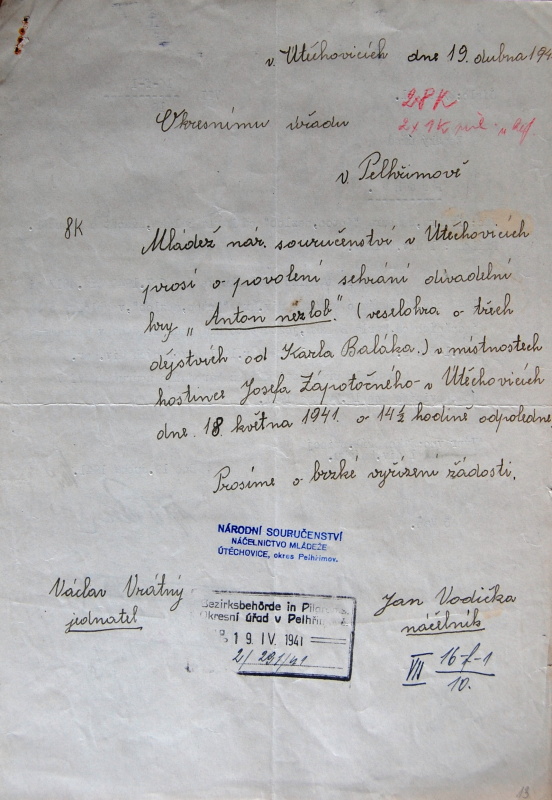 v Útěchovicích dne 19. dubna 194
28 K
Okresnímu úřadu
2 x 1K
v Pelhřimově
8K
Mládež nár. souručenství v Útěchovicích
prosí o povolení sehrání divadelní
hry „Anton nezlob." (veselohra o třech
dějstvích od Karla Baláka.) v místnostech
hostince Josefa Zápotočného v Útěchovicích
dne 18. května 1941. o 14½ hodině odpoledne
Prosíme o brzké vyřízení žádosti.
NÁRODNÍ SOURUČENSTVÍ
NÁČELNICTVO MLÁDEŽE
ÚTĚCHOVICE, okres Pelhřimov.
Václav Vrátný
jednatel
Jan Vodička
náčelník
Bezirksbehörde in Pil
Okresní úřad v Pelhři
19. IV. 1941
2/291/41
VII 16-f-1
10.
13